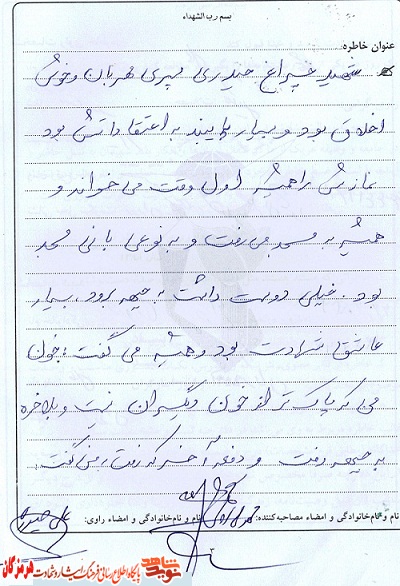 بسم رب الشهداء
عنوان خاطره:
شهید چراغ حیدری پسری مهربان و خوش
اخلاق بود و بسیار پایبند به اعتقاداتش بود
نمازش را همیشه اول وقت می خواند و
همیشه به مسجد می رفت و به نوعی بانی مسجد
بود. خیلی دوست داشت به جبهه برود، بسیار
عاشق شهادت بود و همیشه می گفت: خون
من که پاک تر از خون دیگران نیست و بلاخره
به جبهه رفت و دفعه آخر که رفت، می گفت:
نام و نام خانوادگی و امضاء مصاحبه کننده: نام و نام خانوادگی و امضاء راوی: علی حیدری
نوید شاهد پایگاه اطلاع رسانی فرهنگ ایثار و شهادت هرمزگان